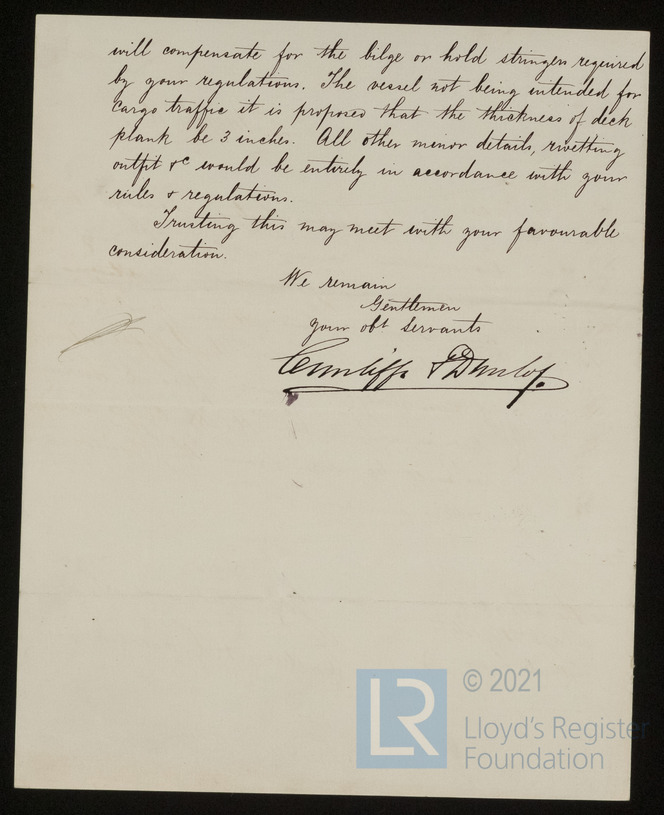 will compensate for the bilge or hold stringers required
by your regulations. The vessel not being intended for
cargo traffic it is proposed that the thickness of deck
plank be 3 inches. All other minor details, rivetting
outfit &c would be entirely in accordance with your
rules & regulations.
Trusting this may meet with your favourable
consideration.
We remain
Gentlemen
your obt servants
Cunliffe & Dunlop.
LR
© 2021
Lloyd's Register
Foundation